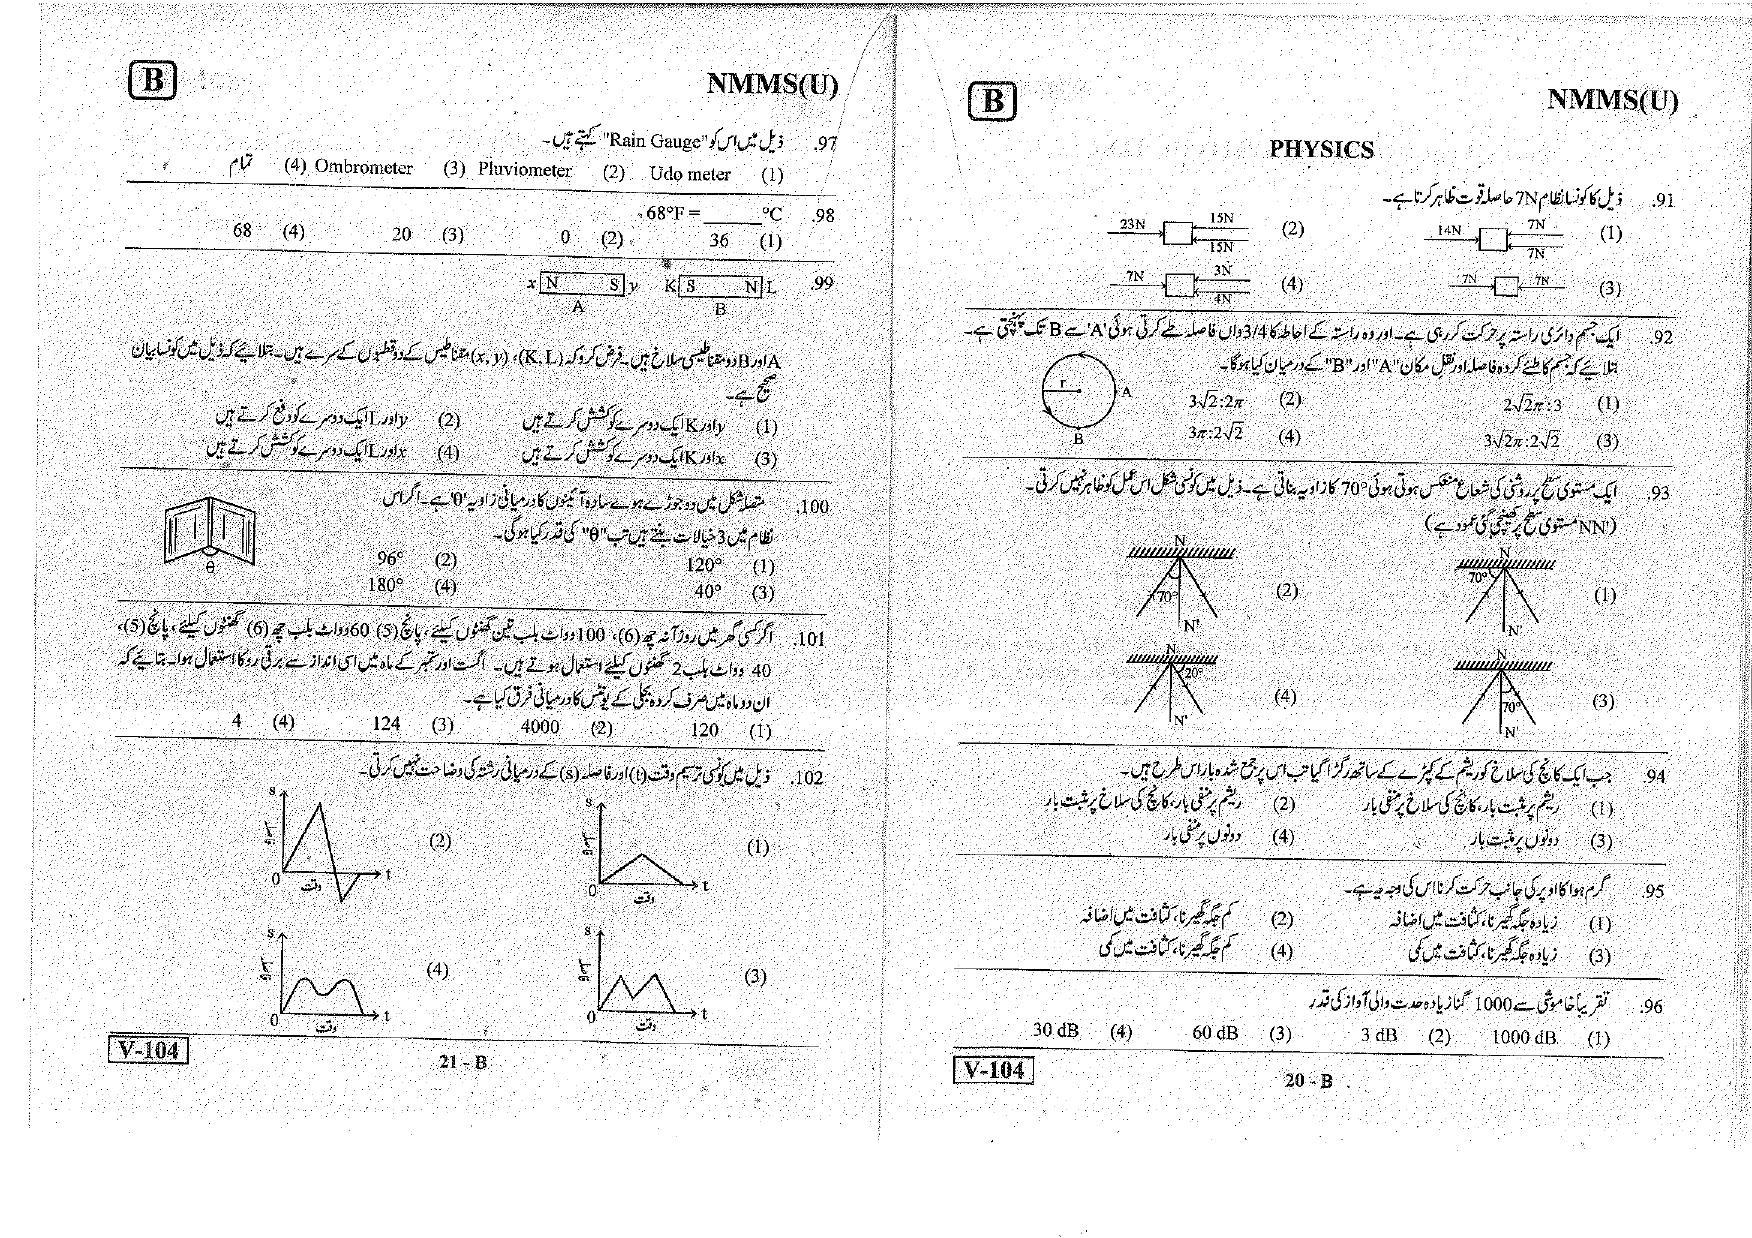 B
NMMS(U)
PHYSICS
91. ذیل کا کونسا نظام 7N حاصلہ قوت ظاہر کرتا ہے۔
(1) 14N 7N 7N (2) 23N 15N 15N
(3) 7N 7N (4) 7N 3N 4N
92. ایک جسم دائری راستہ پر حرکت کر رہی ہے۔ اور وہ راستہ کے احاطہ کا 3/4 واں فاصلہ طے کرتی ہوئی 'A' سے B تک پہنچتی ہے۔
بتلائیے کہ جسم کا طئے کردہ فاصلہ اور نقل مکان "A" اور "B" کے درمیان کیا ہوگا۔
r A B
(1) 2√2π:3 (2) 3√2:2π
(3) 3√2π:2√2 (4) 3π:2√2
93. ایک مستوی سطح پر روشنی کی شعاع منعکس ہوتی ہوئی 70° کا زاویہ بناتی ہے۔ ذیل میں کونسی شکل اس عمل کو ظاہر نہیں کرتی۔
(NN' مستوی سطح پر کھینچی گئی عمود ہے)
(1) N 70° N' (2) N 70° N'
(3) N 70° N' (4) N 20° N'
94. جب ایک کانچ کی سلاخ کو ریشم کے کپڑے کے ساتھ رگڑا گیا تب اس پر جمع شدہ بار اس طرح ہیں۔
(1) ریشم پر مثبت بار، کانچ کی سلاخ پر منفی بار (2) ریشم پر منفی بار، کانچ کی سلاخ پر مثبت بار
(3) دونوں پر مثبت بار (4) دونوں پر منفی بار
95. گرم ہوا کا اوپر کی جانب حرکت کرنا اس کی وجہ یہ ہے۔
(1) زیادہ جگہ گھیرنا، کثافت میں اضافہ (2) کم جگہ گھیرنا، کثافت میں اضافہ
(3) زیادہ جگہ گھیرنا، کثافت میں کمی (4) کم جگہ گھیرنا، کثافت میں کمی
96. تقریباً خاموشی سے 1000 گنا زیادہ حدت والی آواز کی قدر
(1) 1000 dB (2) 3 dB (3) 60 dB (4) 30 dB
V-104
20 - B
B
NMMS(U)
97. ذیل میں اس کو "Rain Gauge" کہتے ہیں۔
(1) Udo meter (2) Pluviometer (3) Ombrometer (4) تمام
98. 68°F = _____ °C
(1) 36 (2) 0 (3) 20 (4) 68
99. x N S y A K S N L B
A اور B دو مقناطیسی سلاخ ہیں۔ فرض کرو کہ (K, L)، (x, y) مقناطیس کے دو قطبوں کے سرے ہیں۔ بتلائیے کہ ذیل میں کونسا بیان
صحیح ہے۔
(1) y اور K ایک دوسرے کو کشش کرتے ہیں (2) y اور L ایک دوسرے کو دفع کرتے ہیں
(3) x اور K ایک دوسرے کو کشش کرتے ہیں (4) x اور L ایک دوسرے کو کشش کرتے ہیں
100. متصلہ شکل میں دو جوڑے ہوئے سادہ آئینوں کا درمیانی زاویہ 'θ' ہے۔ اگر اس
نظام میں 3 خیالات بنتے ہیں تب "θ" کی قدر کیا ہوگی۔
θ
(1) 120° (2) 96°
(3) 40° (4) 180°
101. اگر کسی گھر میں روزآنہ چھ (6)، 100 وواٹ بلب تین گھنٹوں کیلئے، پانچ (5) 60 وواٹ بلب چھ (6) گھنٹوں کیلئے، پانچ (5)،
40 وواٹ بلب 2 گھنٹوں کیلئے استعمال ہوتے ہیں۔ اگست اور ستمبر کے ماہ میں اسی انداز سے برقی رو کا استعمال ہوا۔ بتائیے کہ
ان دو ماہ میں صرف کردہ بجلی کے یونٹس کا درمیانی فرق کیا ہے۔
(1) 120 (2) 4000 (3) 124 (4) 4
102. ذیل میں کونسی ترسیم وقت (t) اور فاصلہ (s) کے درمیانی رشتہ کی وضاحت نہیں کرتی۔
(1) s فاصلہ 0 وقت t (2) s فاصلہ 0 وقت t
(3) s فاصلہ 0 وقت t (4) s فاصلہ 0 وقت t
V-104
21 - B